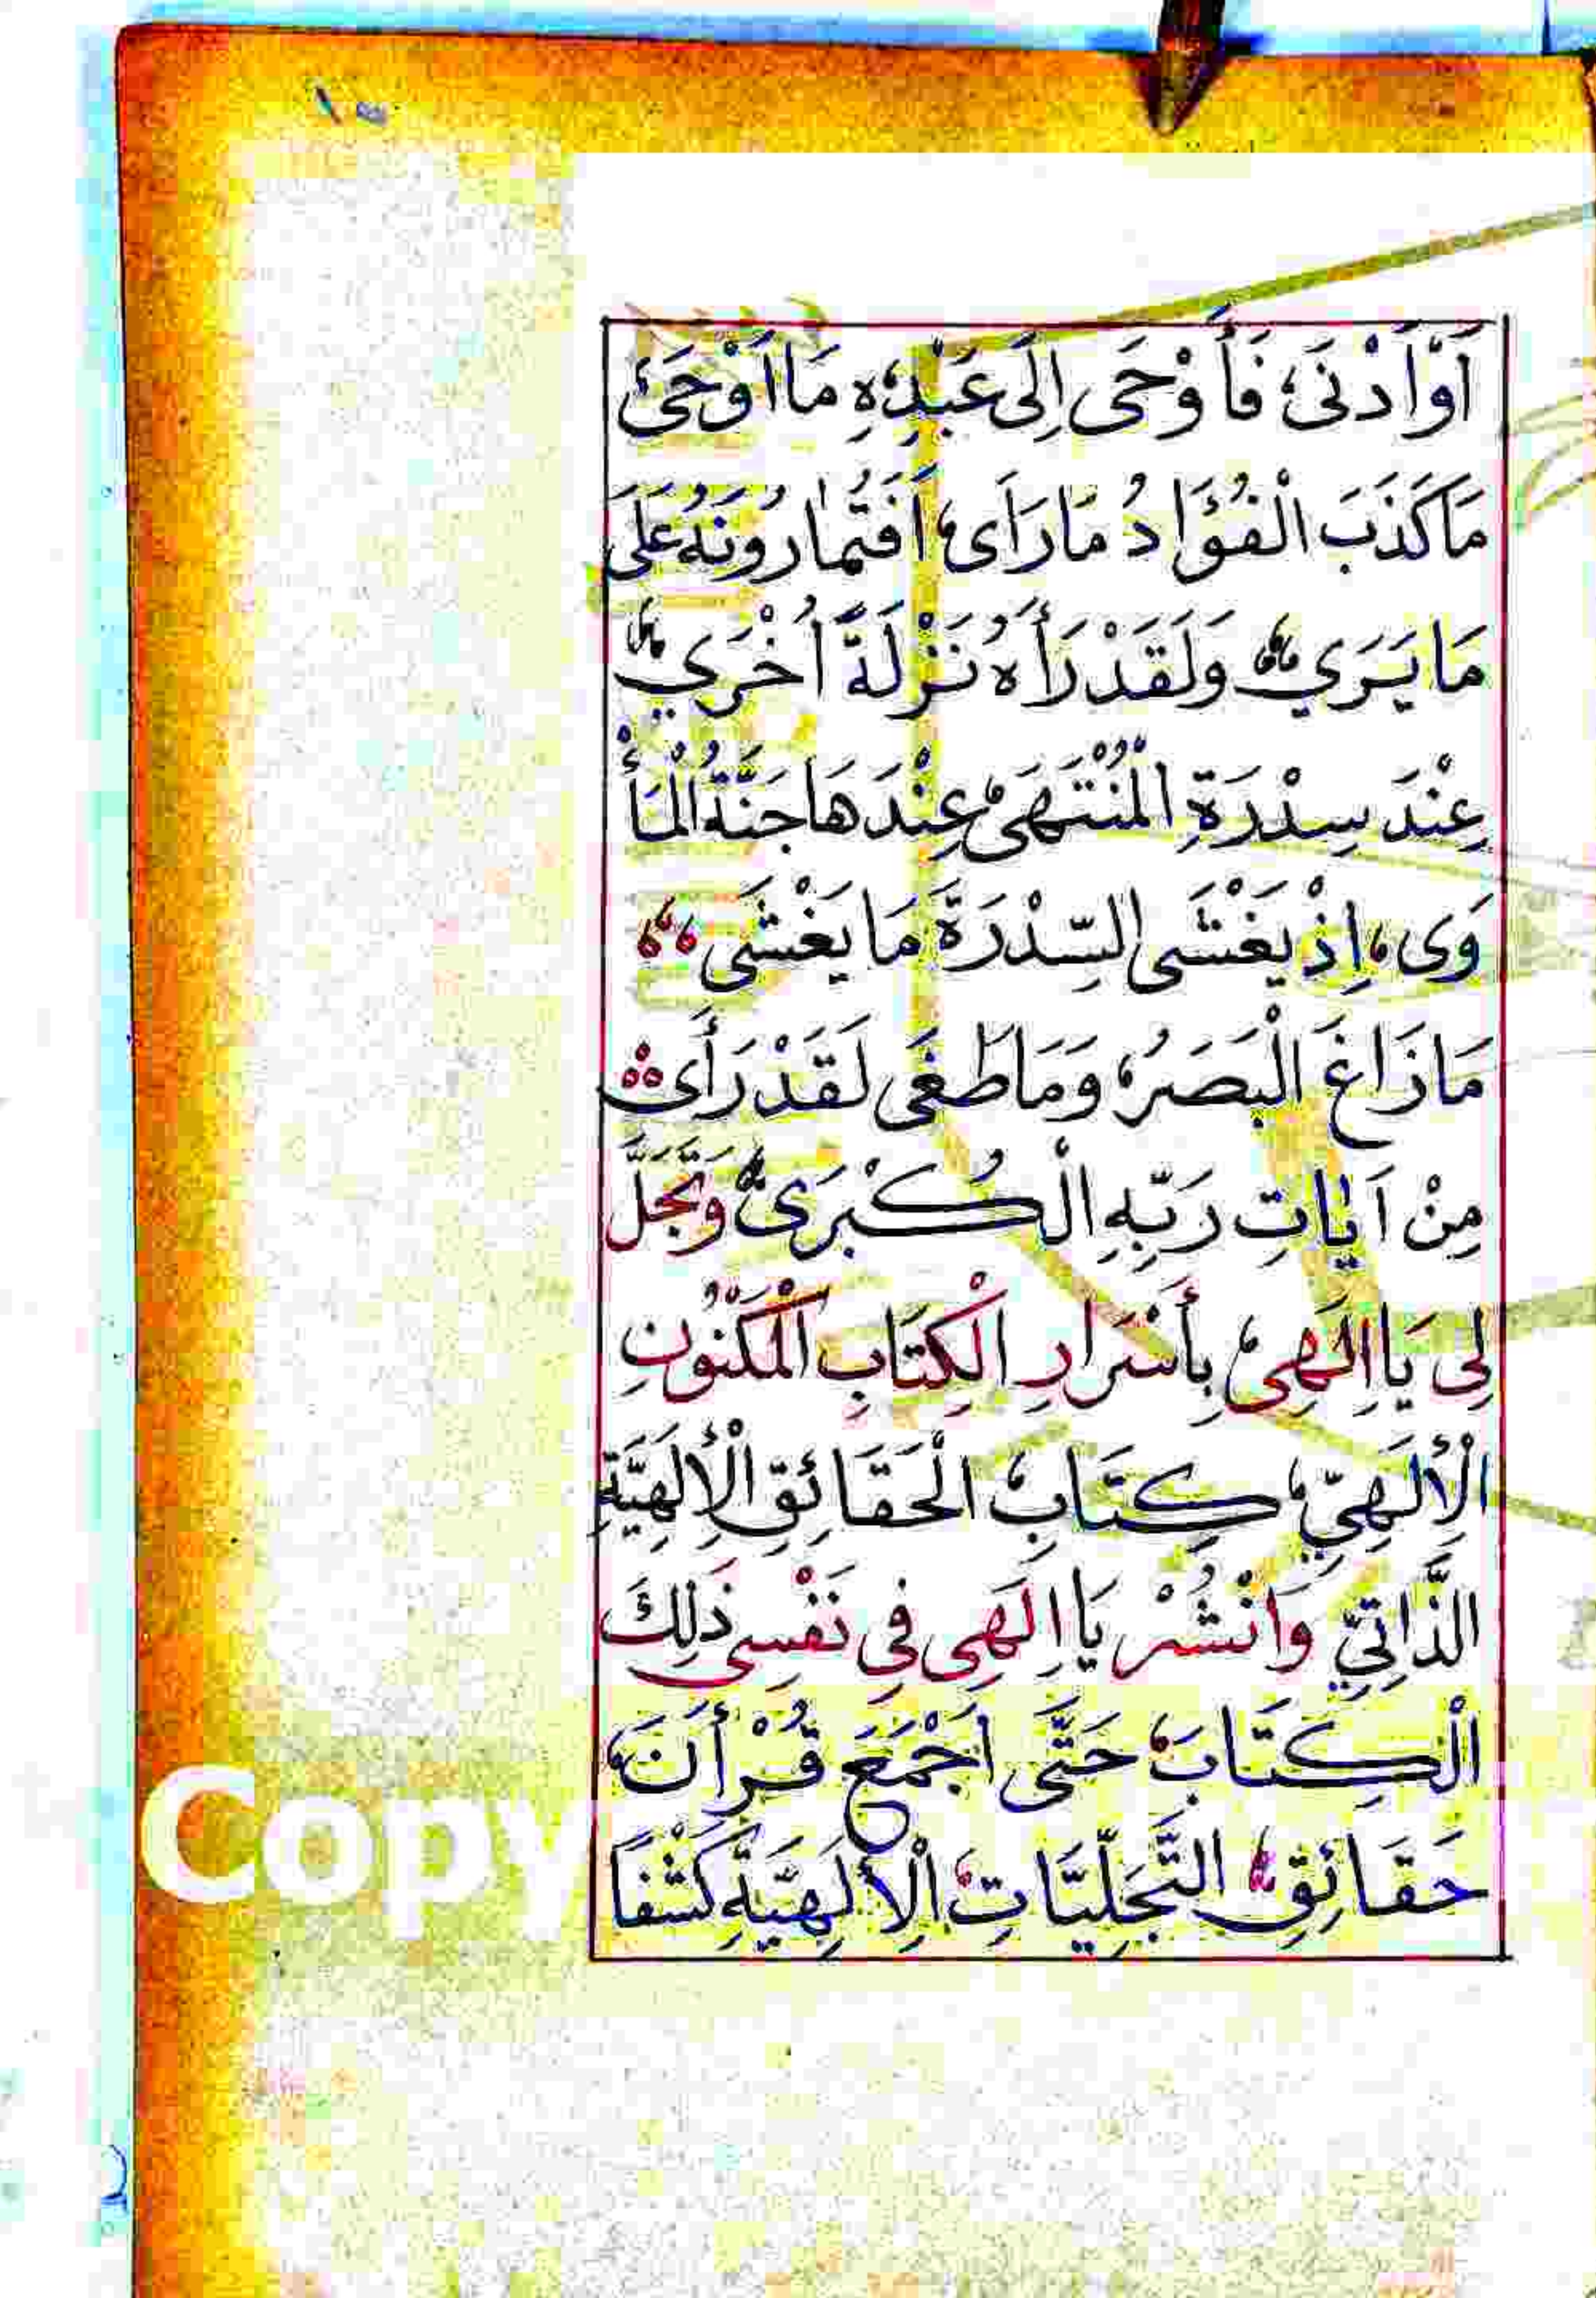 اَوْاَدْنَى، فَأَوْحَى اِلَى عَبْدِهِ مَا اَوْحَىٰ
مَاكَذَبَ الْفُؤَادُ مَارَاَى، اَفَتُمَارُونَهُ عَلَى
مَايَرَي وَلَقَدْرَأَهُ نَزْلَةً اُخْرَي
عِنْدَ سِدْرَةِ الْمُنْتَهَى عِنْدَهَاجَنَّةُ الْمَأْ
وَى، اِذْ يَغْشَى السِّدْرَةَ مَا يَغْشَى
مَازَاغَ الْبَصَرُ، وَمَاطَغَى لَقَدْرَأَى
مِنْ اَيَاتِ رَبِّهِ الْكُبْرَى وَتَجَلَّ
لِى يَااِلَهِى، بِأَسْرَارِ الْكِتَابِ الْمَكْنُونِ
الْإِلَهِيِّ، كِتَابِ، الْحَقَائِقِ الْإِلَهِيَّةِ
الذَّاتِيِّ وَانْشُرْ يَااِلَهِى فِي نَفْسِى ذَلِكَ
الْكِتَابَ، حَتَّى اَجْمَعَ قُرْأَنَ،
حَقَائِقِ التَّجَلِّيَّاتِ، الْإِلَهِيَّةِ كَشْفًا
Copy